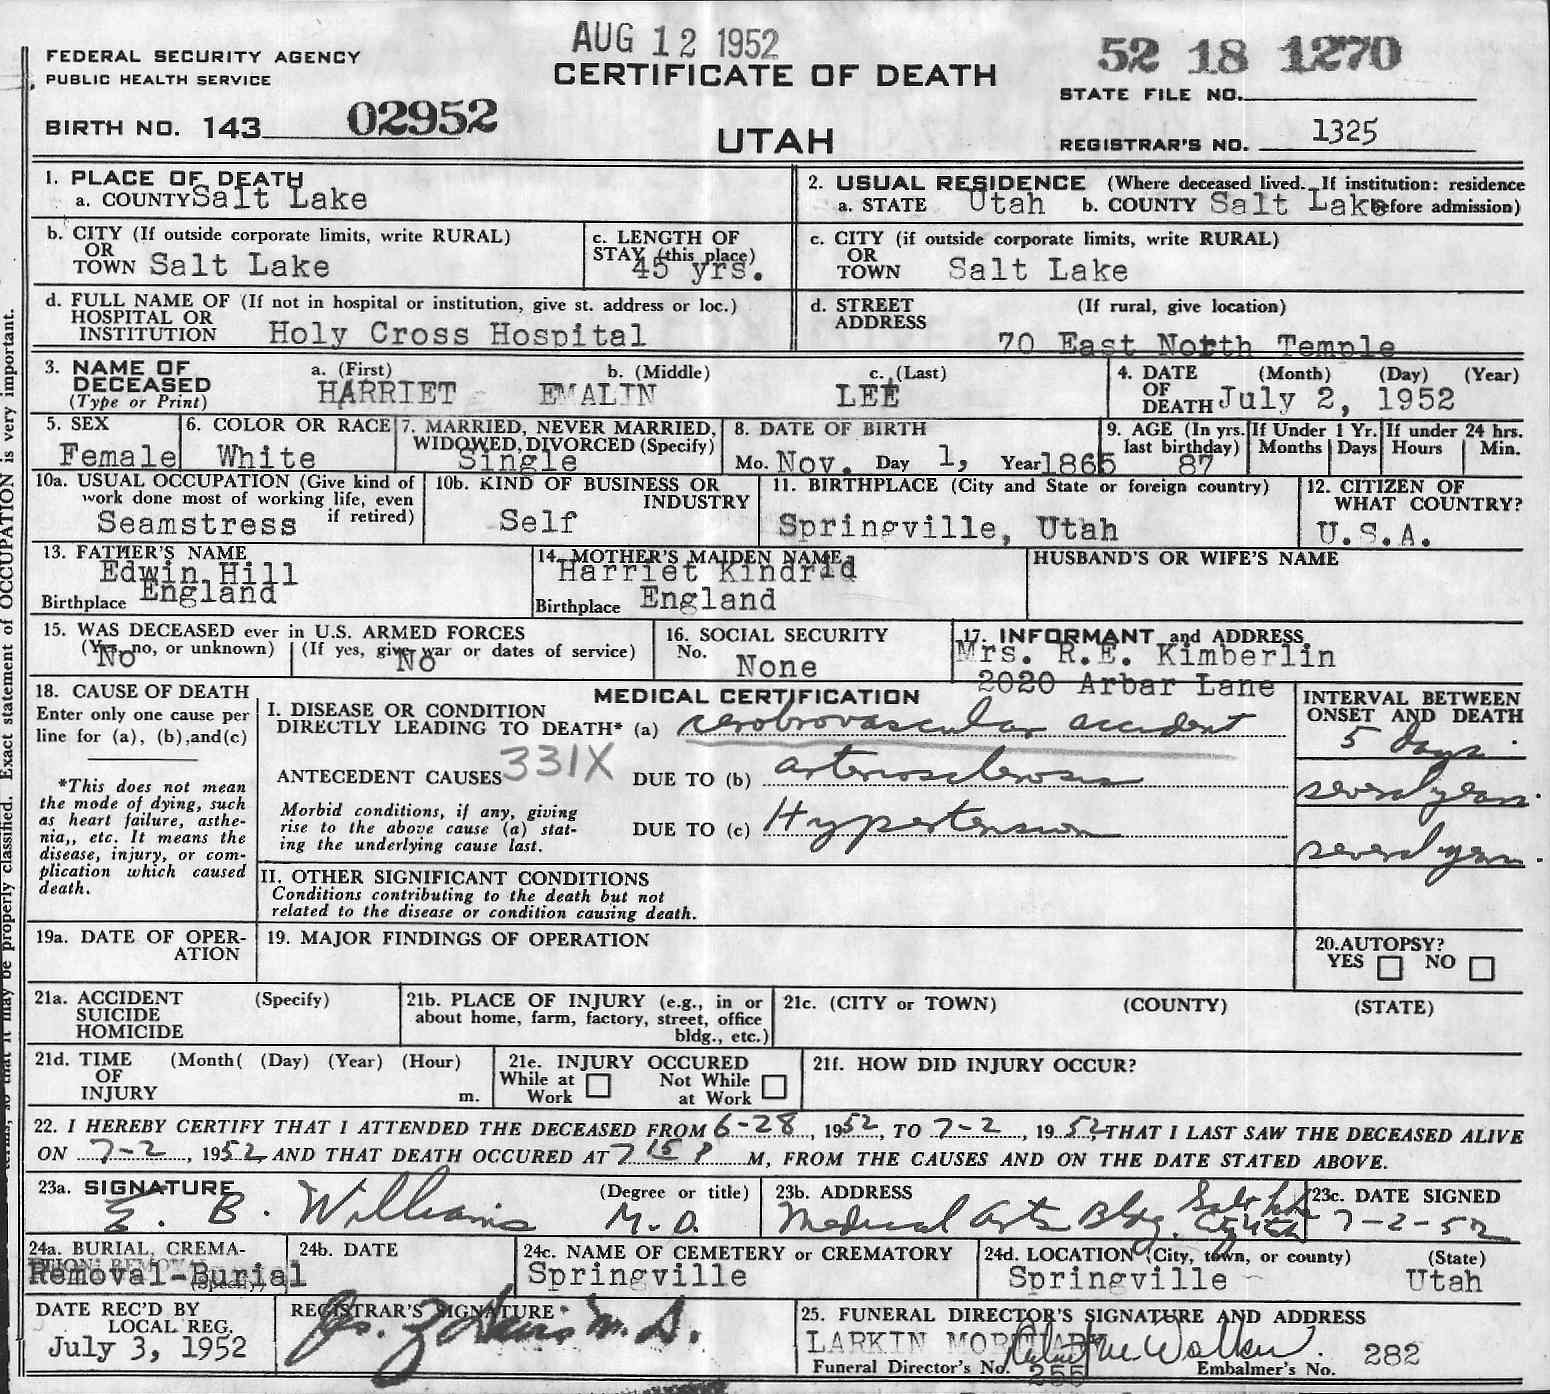 AUG 12 1952
FEDERAL SECURITY AGENCY
PUBLIC HEALTH SERVICE
CERTIFICATE OF DEATH
52 18 1270
STATE FILE NO.
BIRTH NO. 143 02952
UTAH
REGISTRAR'S NO. 1325
1. PLACE OF DEATH
a. COUNTY Salt Lake
2. USUAL RESIDENCE (Where deceased lived. If institution: residence before admission)
a. STATE Utah b. COUNTY Salt Lake
b. CITY (If outside corporate limits, write RURAL)
OR
TOWN Salt Lake
c. LENGTH OF
STAY (this place)
45 yrs.
c. CITY (if outside corporate limits, write RURAL)
OR
TOWN Salt Lake
d. FULL NAME OF (If not in hospital or institution, give st. address or loc.)
HOSPITAL OR
INSTITUTION Holy Cross Hospital
d. STREET (If rural, give location)
ADDRESS
70 East North Temple
3. NAME OF
DECEASED
(Type or Print)
a. (First) b. (Middle) c. (Last)
HARRIET EMALIN LEE
4. DATE (Month) (Day) (Year)
OF
DEATH July 2, 1952
5. SEX
Female
6. COLOR OR RACE
White
7. MARRIED, NEVER MARRIED,
WIDOWED, DIVORCED (Specify)
Single
8. DATE OF BIRTH
Mo. Nov. Day 1, Year 1865
9. AGE (In yrs. last birthday)
87
If Under 1 Yr.
Months Days
If under 24 hrs.
Hours Min.
10a. USUAL OCCUPATION (Give kind of
work done most of working life, even
if retired)
Seamstress
10b. KIND OF BUSINESS OR
INDUSTRY
Self
11. BIRTHPLACE (City and State or foreign country)
Springville, Utah
12. CITIZEN OF
WHAT COUNTRY?
U.S.A.
13. FATHER'S NAME
Edwin Hill
Birthplace England
14. MOTHER'S MAIDEN NAME
Harriet Kindrid
Birthplace England
HUSBAND'S OR WIFE'S NAME
15. WAS DECEASED ever in U.S. ARMED FORCES
(Yes, no, or unknown) (If yes, give war or dates of service)
No No
16. SOCIAL SECURITY
No.
None
17. INFORMANT and ADDRESS
Mrs. R.E. Kimberlin
2020 Arbar Lane
18. CAUSE OF DEATH
Enter only one cause per
line for (a), (b), and (c)
*This does not mean
the mode of dying, such
as heart failure, asthe-
nia,, etc. It means the
disease, injury, or com-
plication which caused
death.
MEDICAL CERTIFICATION
I. DISEASE OR CONDITION
DIRECTLY LEADING TO DEATH* (a) cerebrovascular accident
ANTECEDENT CAUSES 331X DUE TO (b) arteriosclerosis
Morbid conditions, if any, giving
rise to the above cause (a) stat-
ing the underlying cause last.
DUE TO (c) Hypertension
INTERVAL BETWEEN
ONSET AND DEATH
5 days
several years.
several years.
II. OTHER SIGNIFICANT CONDITIONS
Conditions contributing to the death but not
related to the disease or condition causing death.
19a. DATE OF OPER-
ATION
19. MAJOR FINDINGS OF OPERATION
20. AUTOPSY?
YES NO
21a. ACCIDENT (Specify)
SUICIDE
HOMICIDE
21b. PLACE OF INJURY (e.g., in or
about home, farm, factory, street, office
bldg., etc.)
21c. (CITY or TOWN) (COUNTY) (STATE)
21d. TIME (Month( (Day) (Year) (Hour)
OF
INJURY m.
21e. INJURY OCCURED
While at Work Not While at Work
21f. HOW DID INJURY OCCUR?
22. I HEREBY CERTIFY THAT I ATTENDED THE DECEASED FROM 6-28, 1952, TO 7-2, 1952, THAT I LAST SAW THE DECEASED ALIVE
ON 7-2, 1952, AND THAT DEATH OCCURED AT 7 15 P M, FROM THE CAUSES AND ON THE DATE STATED ABOVE.
23a. SIGNATURE (Degree or title)
E. B. Williams M.D.
23b. ADDRESS
Medical Arts Bldg. Salt Lk City
23c. DATE SIGNED
7-2-52
24a. BURIAL, CREMA-
TION, REMOVAL
(Specify)
Removal-Burial
24b. DATE
24c. NAME OF CEMETERY or CREMATORY
Springville
24d. LOCATION (City, town, or county) (State)
Springville Utah
DATE REC'D BY
LOCAL REG.
July 3, 1952
REGISTRAR'S SIGNATURE
M.D.
25. FUNERAL DIRECTOR'S SIGNATURE AND ADDRESS
LARKIN MORTUARY
Funeral Director's No. 255
Embalmer's No. 282
Exact statement of OCCUPATION is very important.
so that it may be properly classified.